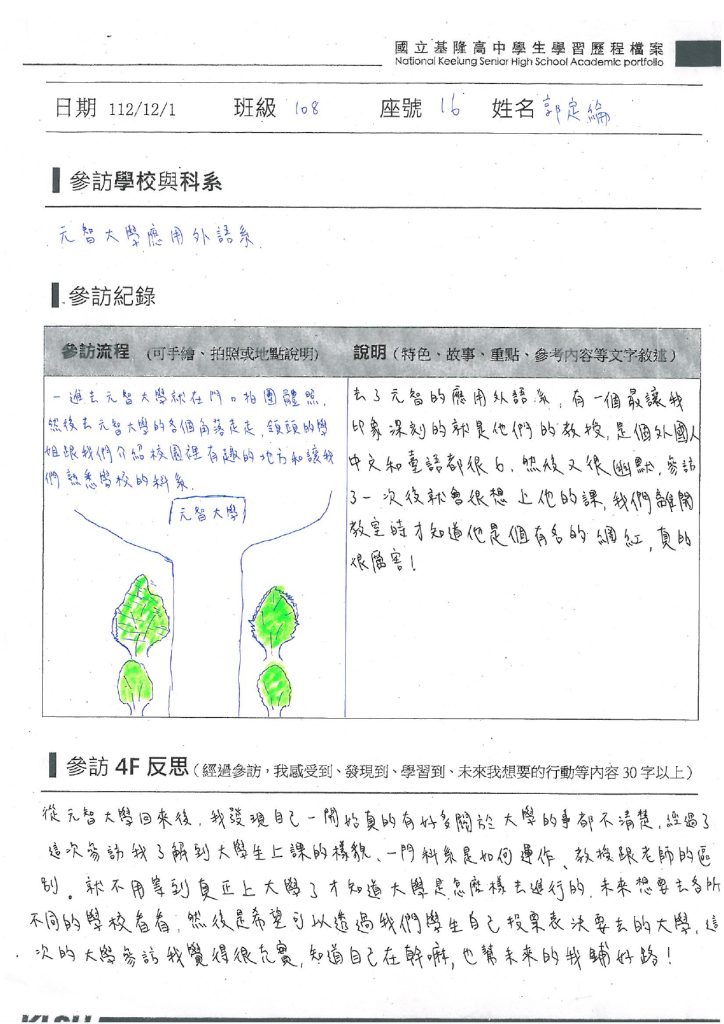 國立基隆高中學生學習歷程檔案
National Keelung Senior High School Academic portfolio
日期 112/12/1 班級 108 座號 16 姓名 郭定綸
參訪學校與科系
元智大學應用外語系
參訪紀錄
參訪流程 (可手繪、拍照或地點說明)
一進去元智大學就在門口拍團體照,
然後去元智大學的各個角落走走,領頭的學
姐跟我們介紹校園裡有趣的地方和讓我
們熟悉學校的科系.
元智大學
說明 (特色、故事、重點、參考內容等文字敘述)
去了元智的應用外語系,有一個最讓我
印象深刻的就是他們的教授,是個外國人
中文和臺語都很6,然後又很幽默,參訪
了一次後就會很想上他的課,我們離開
教室時才知道他是個有名的網紅,真的
很厲害!
參訪 4F 反思 (經過參訪,我感受到、發現到、學習到、未來我想要的行動等內容 30 字以上)
從元智大學回來後,我發現自己一開始真的有好多關於大學的事都不清楚,經過了
這次參訪我了解到大學生上課的樣貌、一門科系是如何運作、教授跟老師的區
別。就不用等到真正上大學了才知道大學是怎麼樣去進行的.未來想要去各所
不同的學校看看,然後是希望可以透過我們學生自己投票表決要去的大學,這
次的大學參訪我覺得很充實,知道自己在幹嘛,也幫未來的我鋪好路!
KLSH